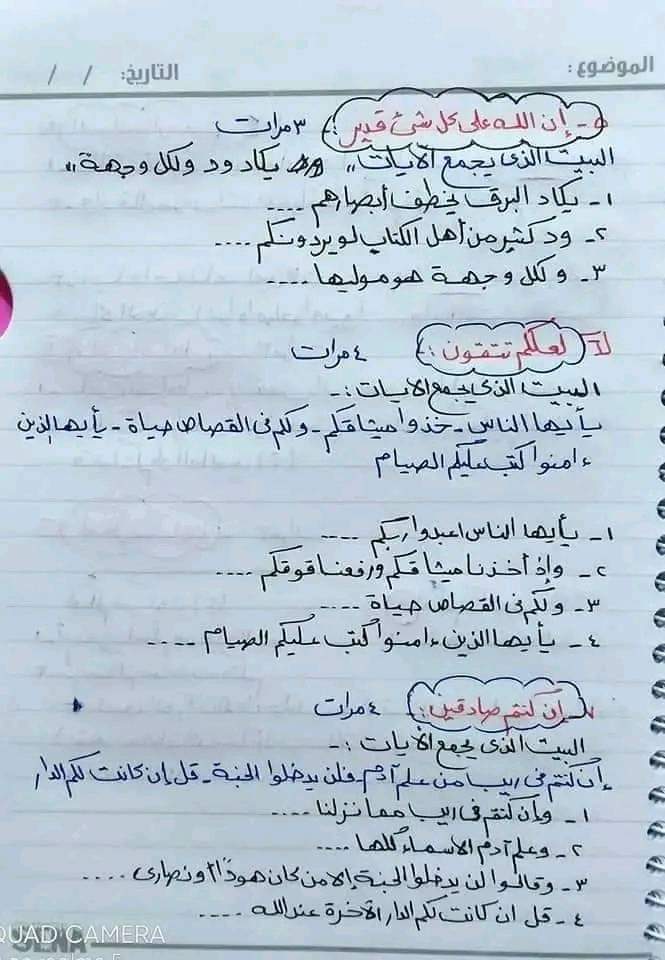 الموضوع: التاريخ: / /
٥- إن الله على كل شئ قدير: ٣ مرات
البيت الذى يجمع الآيات " يكاد ود ولكل وجهة "
١- يكاد البرق يخطف أبصارهم ....
٢- ود كثير من أهل الكتاب لو يردونكم ....
٣- ولكل وجهة هو موليها ....
٦- لعلكم تتقون :- ٤ مرات
البيت الذى يجمع الآيات :-
يأيها الناس - خذوا ميثاقكم - ولكم فى القصاص حياة - يأيها الذين
ءامنوا كتب عليكم الصيام
١- يأيها الناس اعبدوا ربكم ....
٢- وإذ أخذنا ميثاقكم ورفعنا فوقكم ....
٣- ولكم فى القصاص حياة ....
٤- يأيها الذين ءامنوا كتب عليكم الصيام ....
٧- إن كنتم صادقين: ٤ مرات
البيت الذى يجمع الآيات :-
إن كنتم فى ريب من علم آدم - فلن يدخلوا الجنة - قل إن كانت لكم الدار
١- وإن كنتم فى ريب مما نزلنا ....
٢- وعلم آدم الأسماء كلها ....
٣- وقالوا لن يدخلوا الجنة إلا من كان هودًا أو نصارى ....
٤- قل ان كانت لكم الدار الآخرة عند الله ....
QUAD CAMERA
SENA